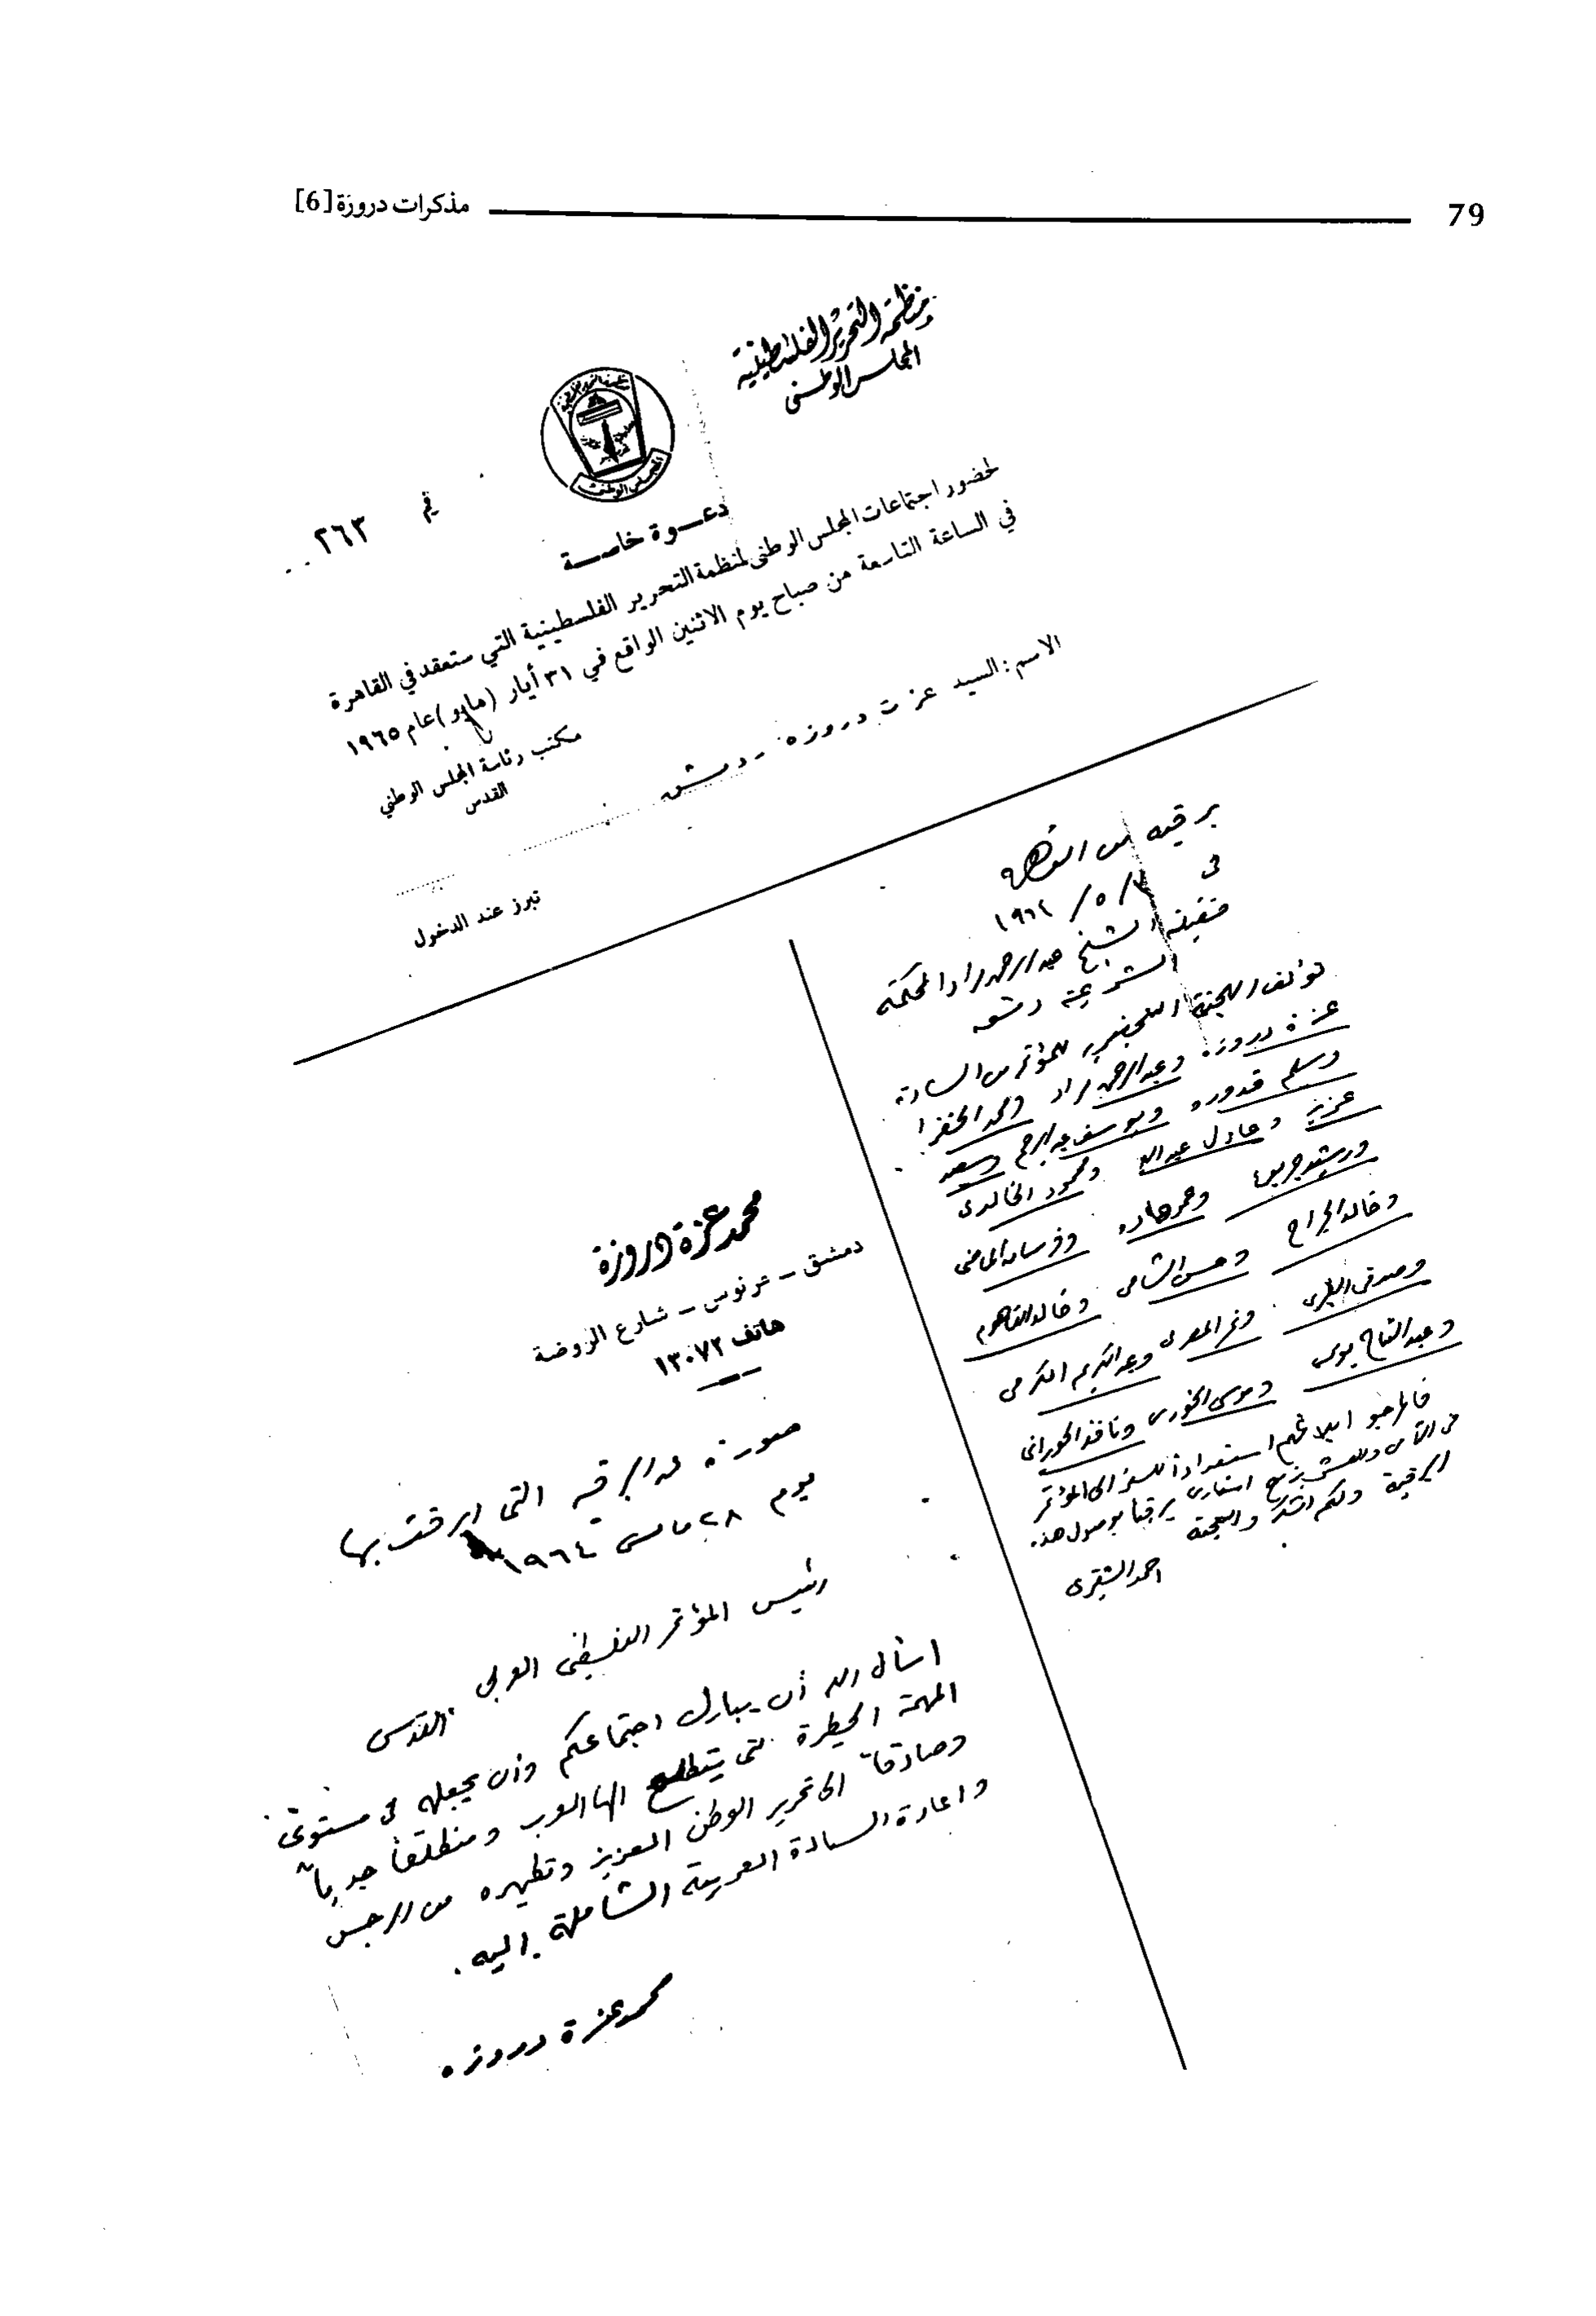 79
مذكرات دروزة [6]
منظمة التحرير الفلسطينية
المجلس الوطني
المجلس الوطني
رقم ٢٦٣
دعوة خاصة
لحضور اجتماعات المجلس الوطني لمنظمة التحرير الفلسطينية التي ستعقد في القاهرة
في الساعة التاسعة من صباح يوم الاثنين الواقع في ٣١ أيار (مايو) عام ١٩٦٥
الاسم: السيد عزت دروزه - دمشق
مكتب رئاسة المجلس الوطني
القدس
تبرز عند الدخول
برقيه من القاهرة
في
/٥/ ١٩٦٤
فضيلة الشيخ عبد الرحمن مراد المحكمة
الشرعية دمشق
تؤلف اللجنة التحضيرية للمؤتمر من السادة
عزة دروزه وعبد الرحمن مراد ومحمد الخضرا
وسليم قدوره ويوسف عبد الرحيم وسعيد
عزيز وعادل عبد الله ومحمود الخالدي
ورشيد جربوع وفرسان الماضي
وخالد الجراح وحسن الشامي وخالد الفاهوم
ونمر المصري وعبد الكريم الكرمي
وعبد الفتاح يونس وموسى الخوري ونافذ الحوراني
فالرجو ابلاغهم استعداداً للسفر الى المؤتمر
البرقية ولكم الشكر والتحية
احمد الشقيري
محمد عزة دروزة
دمشق - عرنوس - شارع الروضة
هاتف ١٣٠٧٢
صورة عن البرقية التي ابرقت بها
يوم ٢٨ مايس ١٩٦٤
رئيس المؤتمر الفلسطيني العربي القدس
اسأل الله أن يبارك اجتماعكم وأن يجعله في مستوى
المهمة الخطيرة التي يتطلع اليها العرب ومنطلقاً جدياً
وصادقاً الى تحرير الوطن العزيز وتطهيره من الرجس
واعادة السيادة العربية الشاملة اليه.
محمد عزة دروزه